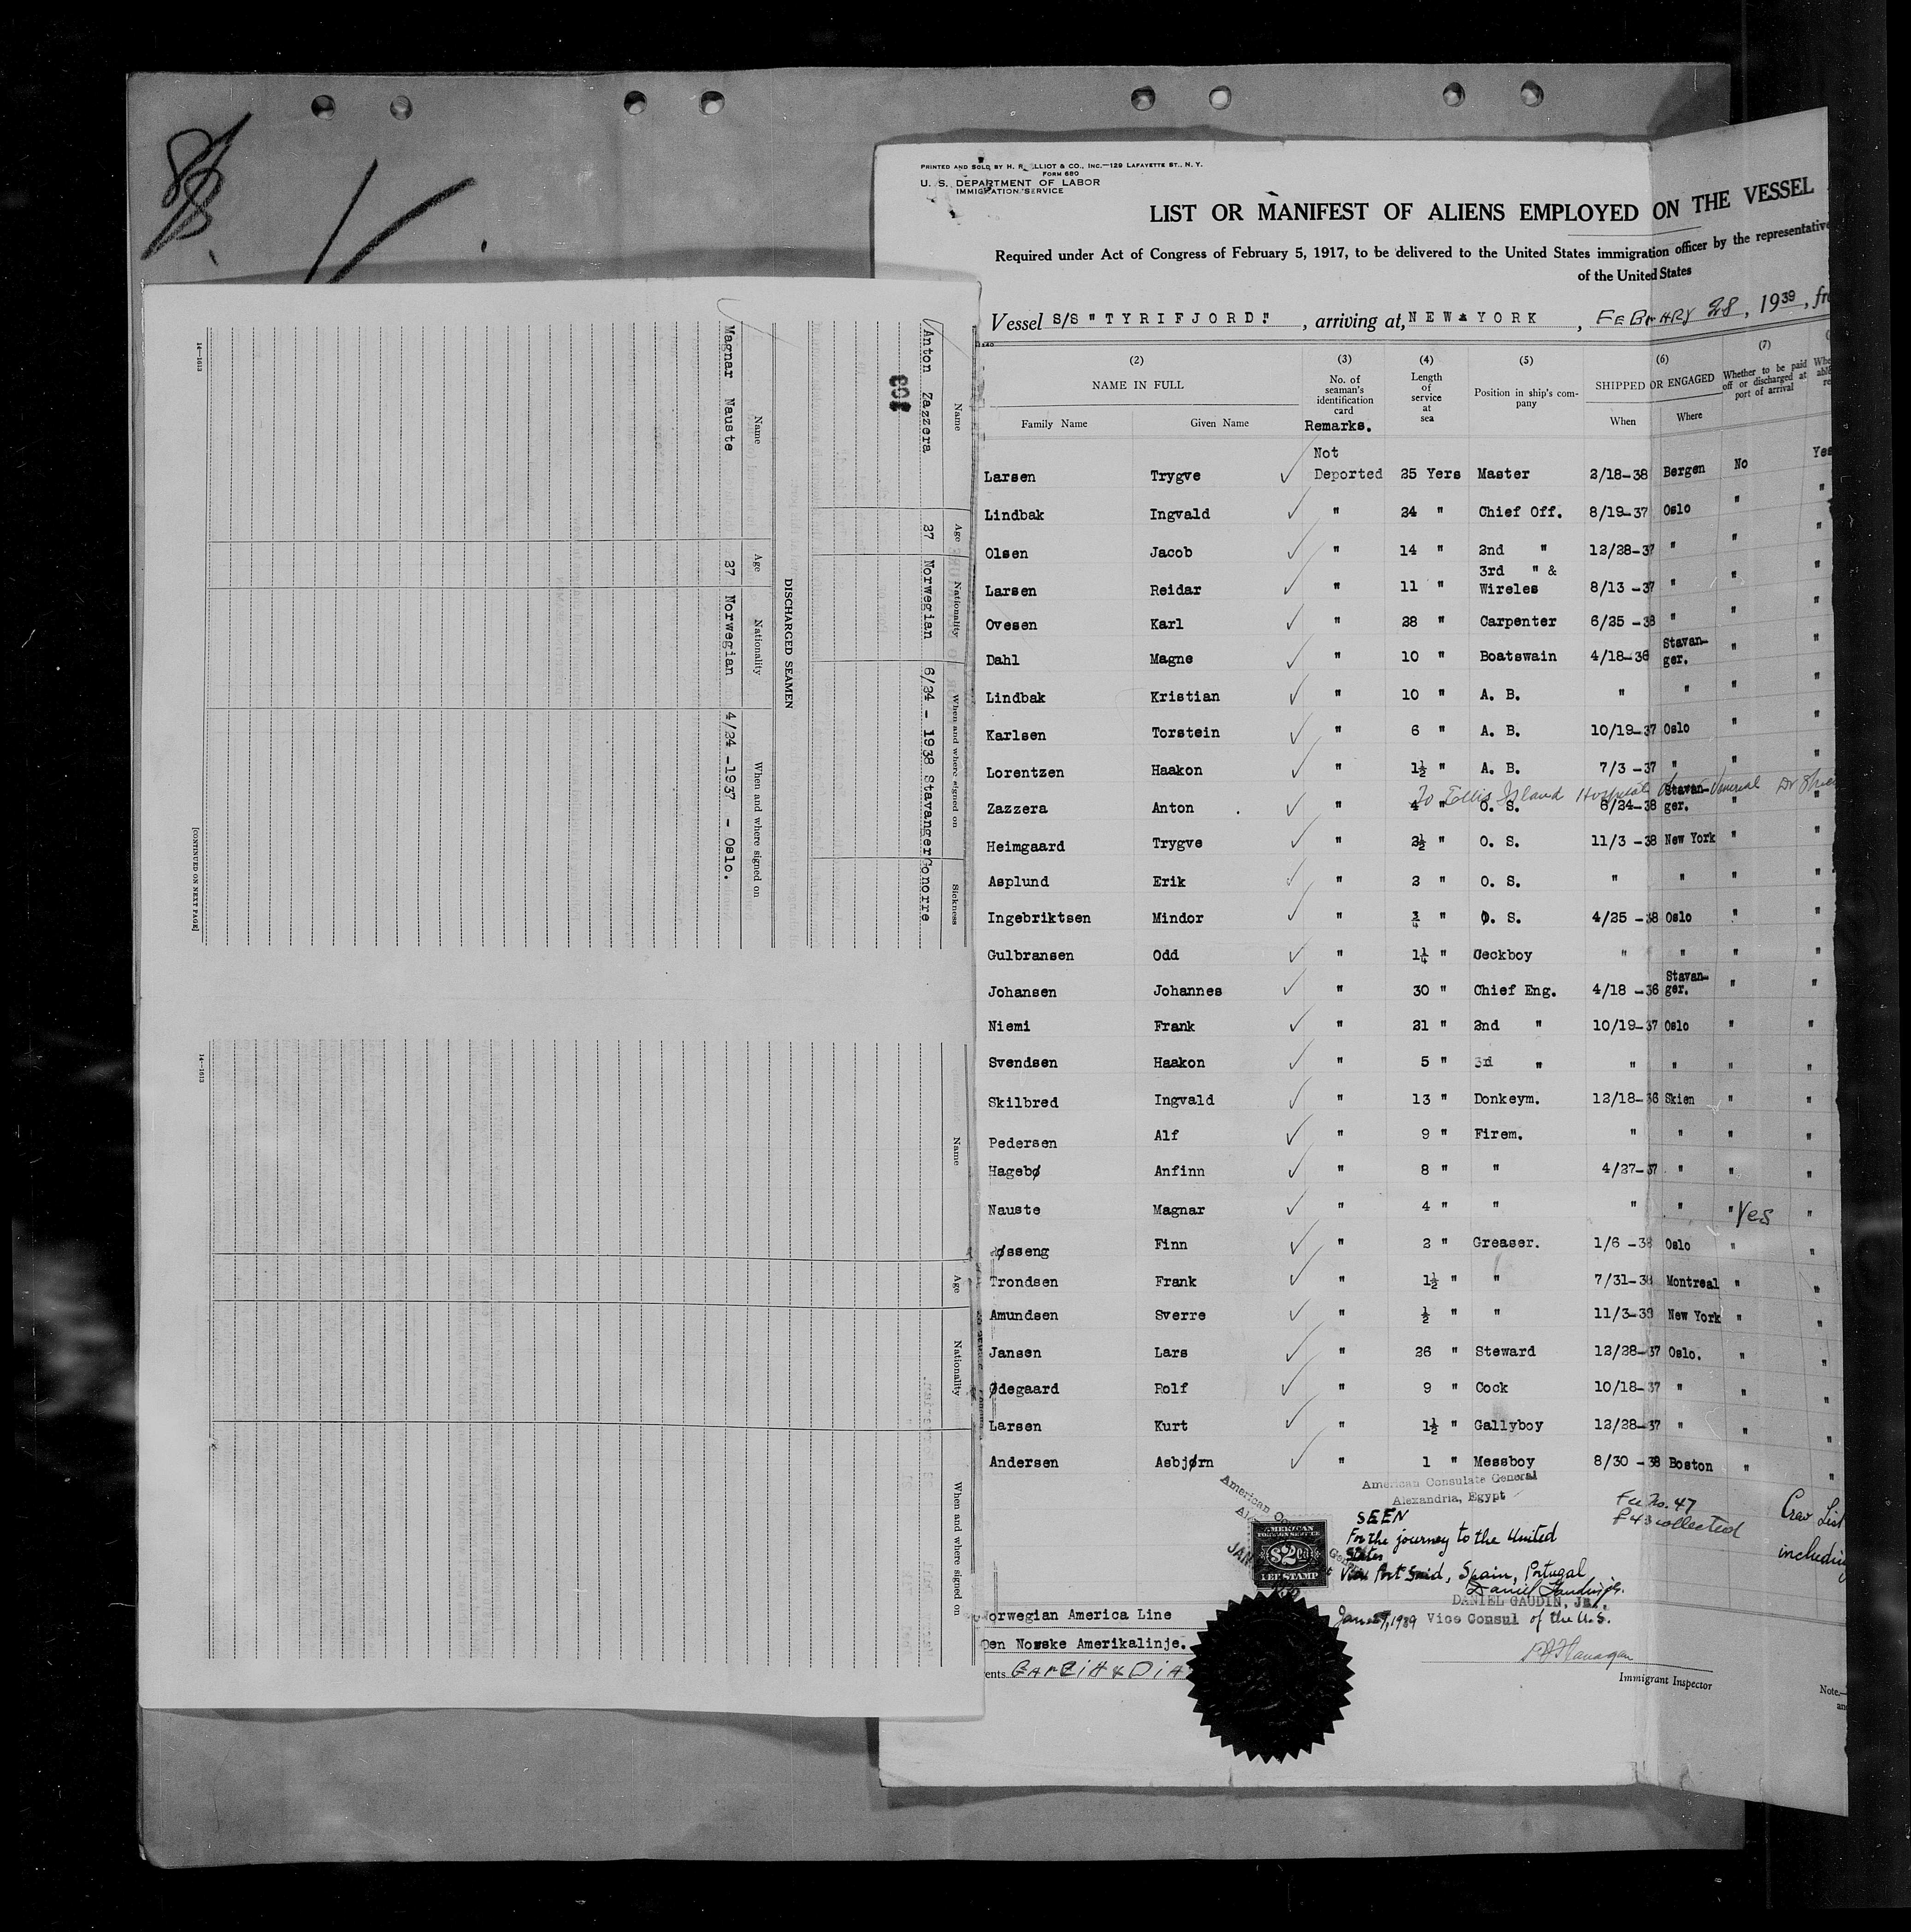 PRINTED AND SOLD BY H. R. ELLIOT & CO., INC.—129 LAFAYETTE ST., N. Y.
FORM 680
U. S. DEPARTMENT OF LABOR
IMMIGRATION SERVICE
LIST OR MANIFEST OF ALIENS EMPLOYED ON THE VESSEL
Required under Act of Congress of February 5, 1917, to be delivered to the United States immigration officer by the representative
of the United States
Vessel S/S "TYRIFJORD", arriving at, NEW YORK, FEBRUARY 28, 1939, fr
(2) (3) (4) (5) (6) (7)
NAME IN FULL No. of seaman's identification card Length of service at sea Position in ship's company SHIPPED OR ENGAGED Whether to be paid off or discharged at port of arrival
Family Name Given Name Remarks. When Where
Not
Larsen Trygve Deported 25 Yers Master 2/18-38 Bergen No Yes
Lindbak Ingvald " 24 " Chief Off. 8/19-37 Oslo " "
Olsen Jacob " 14 " 2nd " 12/28-37 " " "
3rd " &
Larsen Reidar " 11 " Wireles 8/13 -37 " " "
Ovesen Karl " 28 " Carpenter 6/25 -38 " " "
Dahl Magne " 10 " Boatswain 4/18-36 Stavan-ger. " "
Lindbak Kristian " 10 " A. B. " " " "
Karlsen Torstein " 6 " A. B. 10/19-37 Oslo " "
Lorentzen Haakon " 1½ " A. B. 7/3 -37 " " "
To Ellis Island Hospital Venereal Dr
Zazzera Anton " 4 " O. S. 6/24-38 Stavan-ger. " "
Heimgaard Trygve " 2½ " O. S. 11/3 -38 New York " "
Asplund Erik " 2 " O. S. " " " "
Ingebriktsen Mindor " ¾ " O. S. 4/25 -38 Oslo " "
Gulbransen Odd " 1¼ " Deckboy " " " "
Johansen Johannes " 30 " Chief Eng. 4/18 -36 Stavan-ger. " "
Niemi Frank " 21 " 2nd " 10/19-37 Oslo " "
Svendsen Haakon " 5 " 3rd " " " " "
Skilbred Ingvald " 13 " Donkeym. 12/18-36 Skien " "
Pedersen Alf " 9 " Firem. " " " "
Hagebø Anfinn " 8 " " 4/27-37 " " "
Nauste Magnar " 4 " " " " " Yes "
øsseng Finn " 2 " Greaser. 1/6 -38 Oslo " "
Trondsen Frank " 1½ " " 7/31-38 Montreal " "
Amundsen Sverre " ½ " " 11/3-38 New York " "
Jansen Lars " 26 " Steward 12/28-37 Oslo. " "
Ødegaard Rolf " 9 " Cock 10/18-37 " " "
Larsen Kurt " 1½ " Gallyboy 12/28-37 " " "
Andersen Asbjørn " 1 " Messboy 8/30 -38 Boston " "
American Consulate General
Alexandria, Egypt
SEEN
For the journey to the United
States
Via Port Said, Spain, Portugal
Daniel Gaudin Jr.
DANIEL GAUDIN, JR.
Jan 27, 1939 Vice Consul of the U.S.
Fee No. 47
collected
Crew List
including
AMERICAN
FOREIGN SERVICE
$2
FEE STAMP
JAN
Norwegian America Line
Den Norske Amerikalinje.
ents
Immigrant Inspector
Note.—
103
Name Age Nationality When and where signed on Sickness
Anton Zazzera 27 Norwegian 6/24 - 1938 Stavanger Gonorre
DISCHARGED SEAMEN
Name Age Nationality When and where signed on
Magnar Nauste 27 Norwegian 4/24 -1937 - Oslo.
14—1613
[CONTINUED ON NEXT PAGE]
Name Age Nationality When and where signed on
14—1613